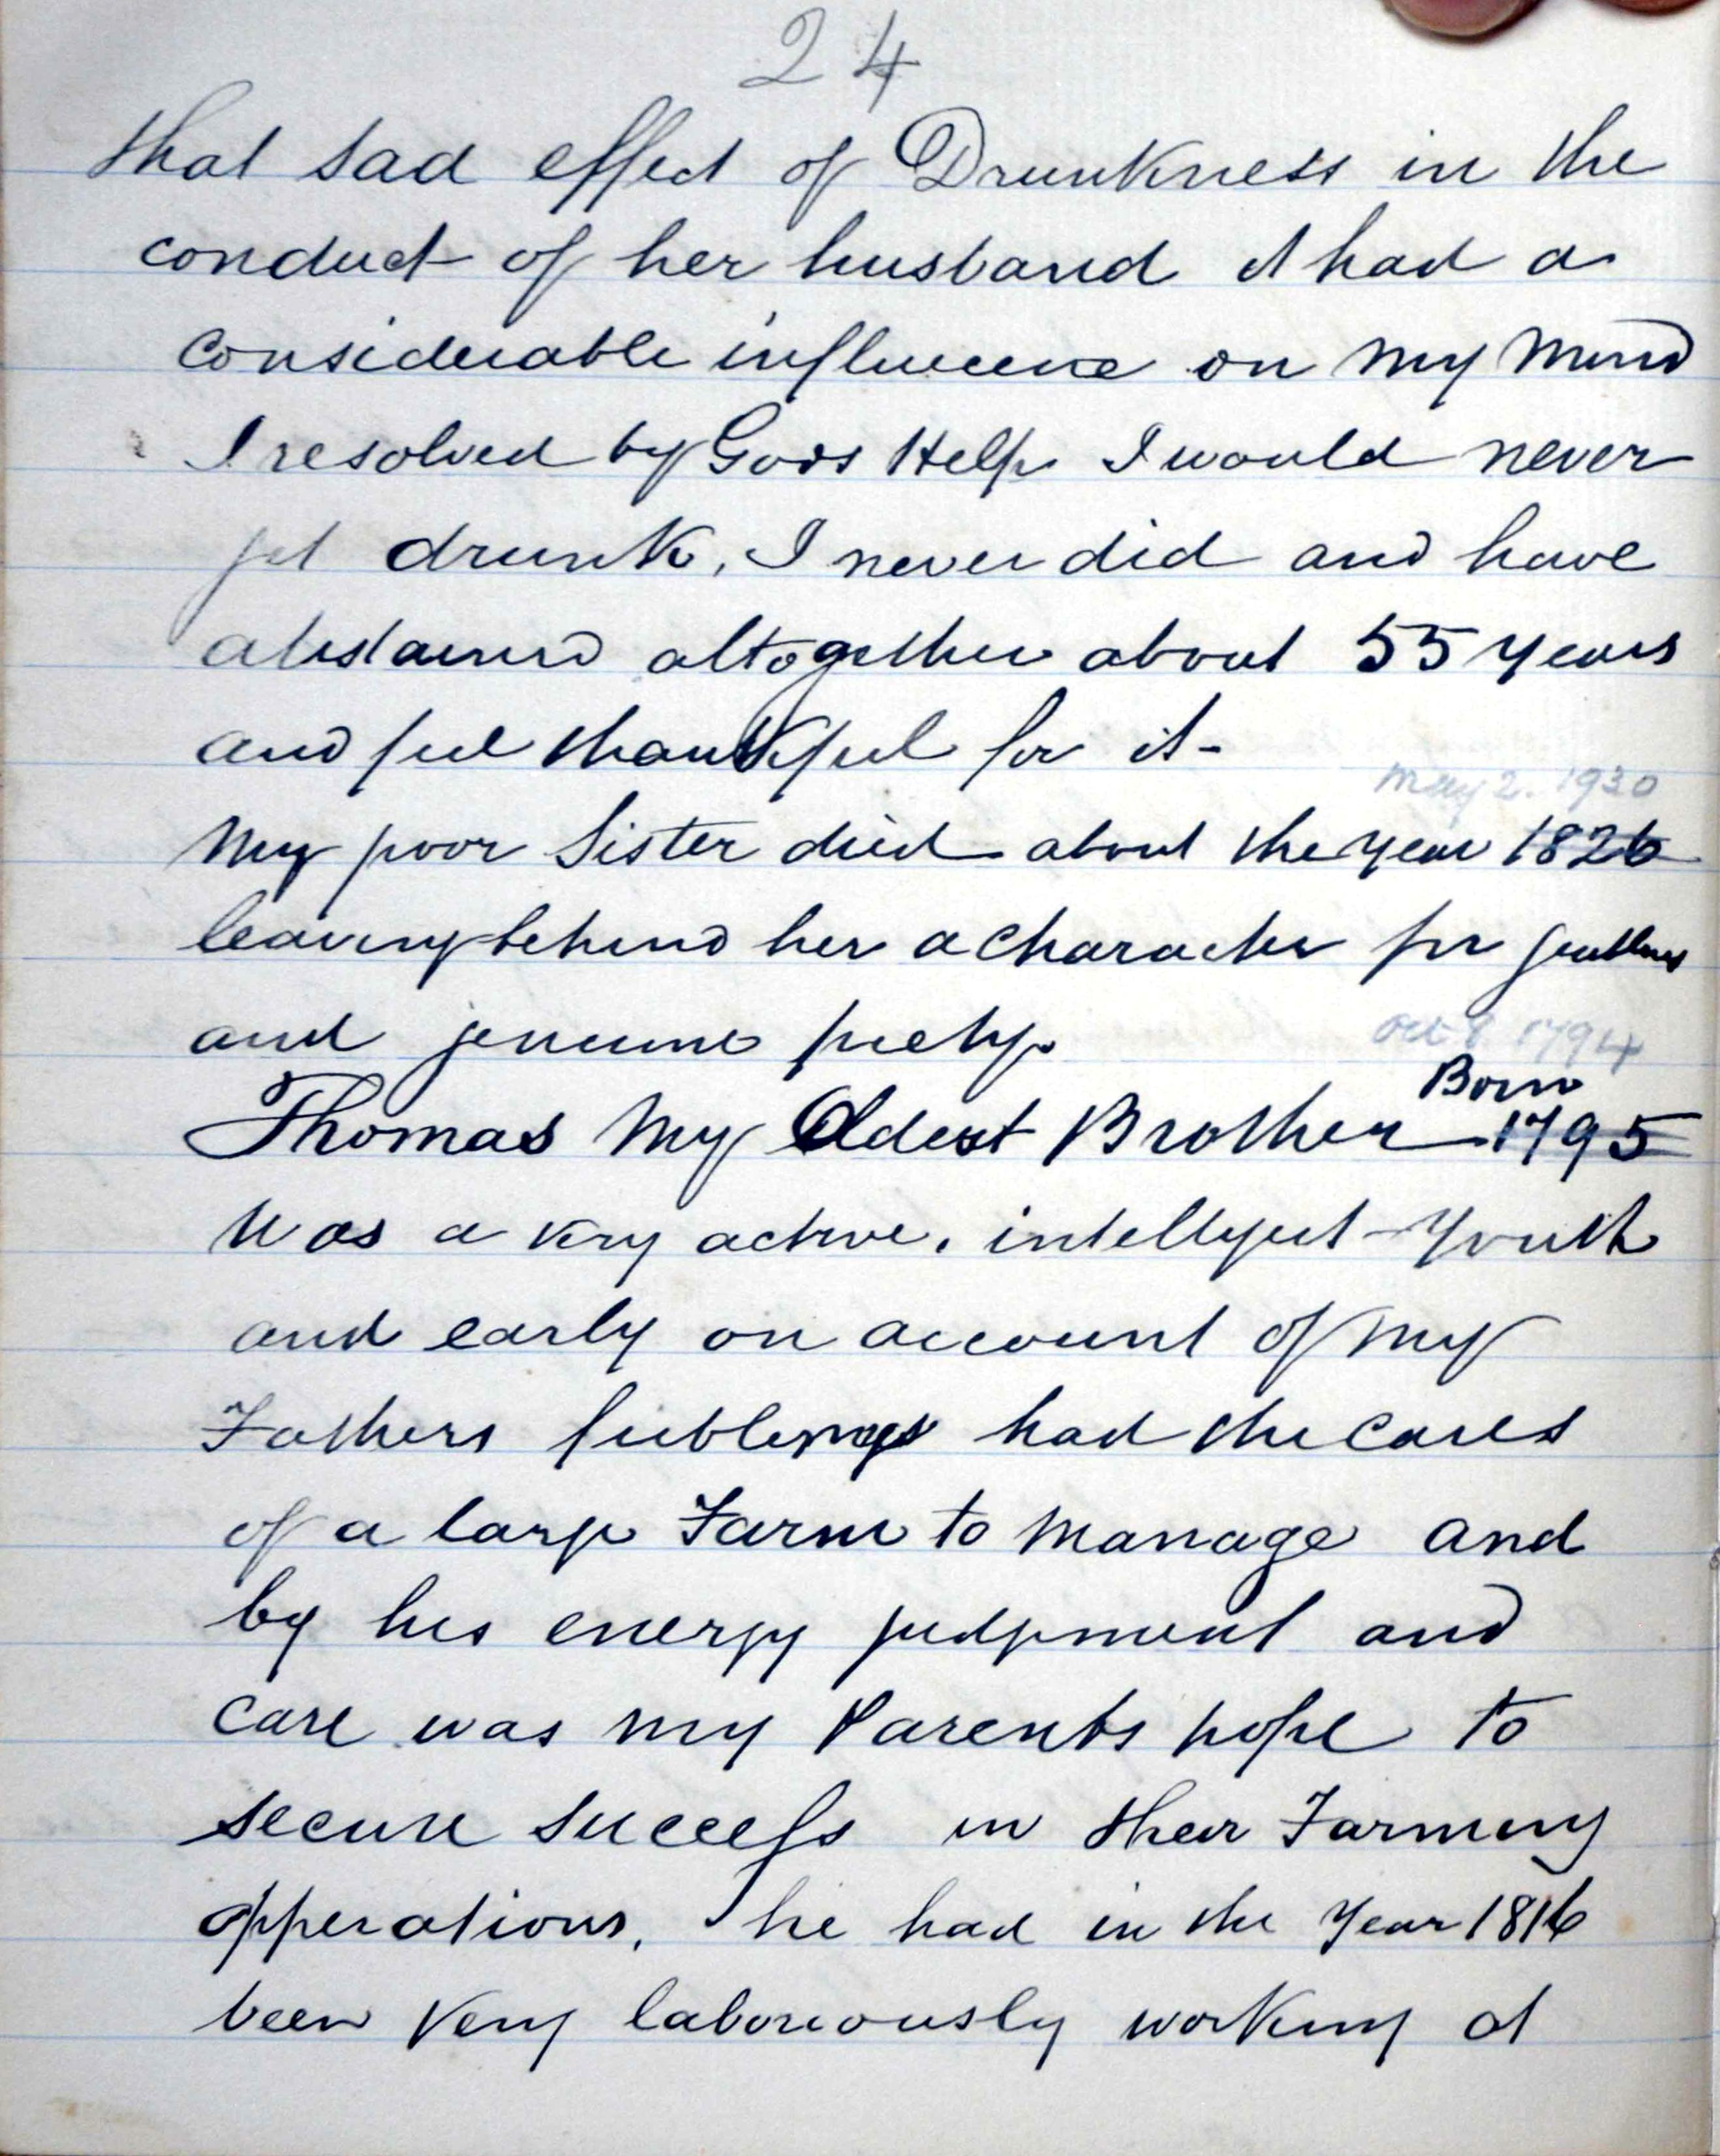 24
that sad effect of Drunkness in the
conduct of her husband it had a
considerable influence on my mind
I resolved by Gods Help I would never
get drunk, I never did and have
abstained altogether about 55 years
and feel thankful for it-
May 2. 1930
My poor Sister died about the year 1826
leaving behind her a Character for gentlness
and genuine piety
Oct 8 1794
Born
Thomas My Oldest Brother 1795
Was a very active, intelligent Youth
and early on account of my
Fathers feebleness had the cares
of a large Farm to manage and
by his energy judgment and
care was my Parents hope to
secure success in their Farming
opperations, he had in the Year 1816
been very laboriously working at